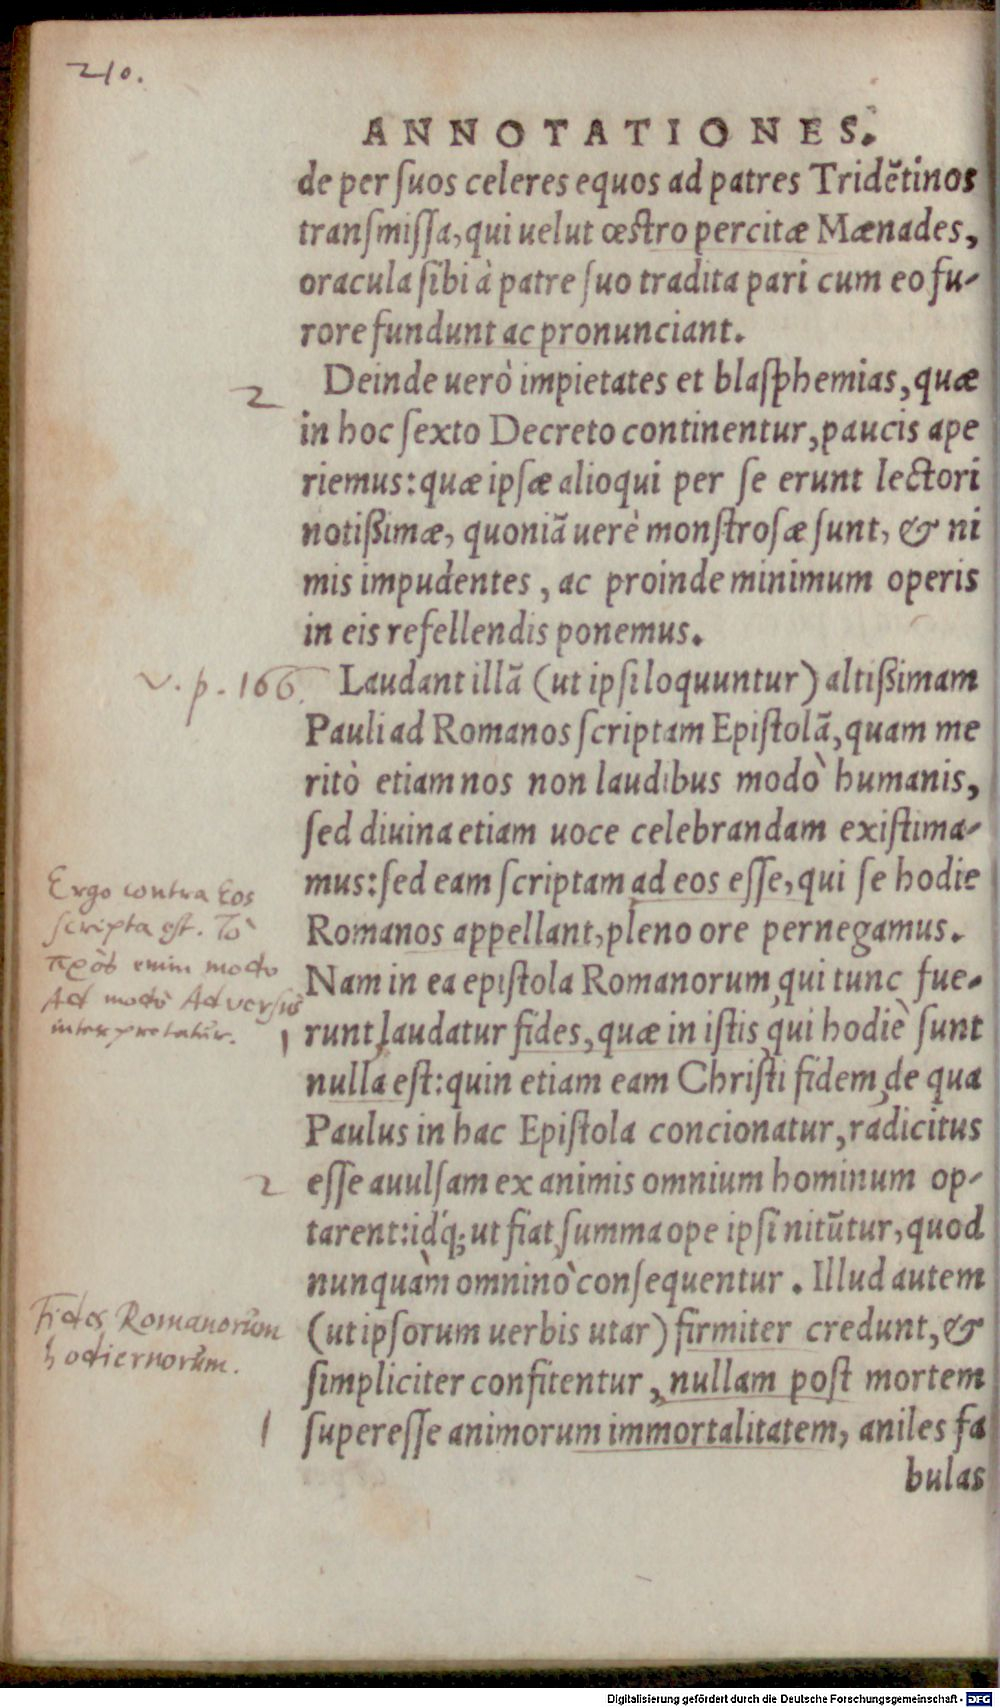 210.
ANNOTATIONES.
de per ſuos celeres equos ad patres Tridẽtinos
transmiſſa, qui uelut œſtro percitæ Mænades,
oracula ſibi à patre ſuo tradita pari cum eo fu-
rore fundunt ac pronunciant.
2
Deinde uerò impietates et blaſphemias, quæ
in hoc ſexto Decreto continentur, paucis ape
riemus: quæ ipſæ alioqui per ſe erunt lectori
notißimæ, quoniã uerè monſtroſæ ſunt, & ni
mis impudentes, ac proinde minimum operis
in eis refellendis ponemus.
v. p. 166.
Laudant illã (ut ipſi loquuntur) altißimam
Pauli ad Romanos ſcriptam Epiſtolã, quam me
ritò etiam nos non laudibus modò humanis,
ſed diuina etiam uoce celebrandam exiſtima-
mus: ſed eam ſcriptam ad eos eſſe, qui ſe hodie
Romanos appellant, pleno ore pernegamus.
Ergo contra Eos
ſcripta eſt. Τὸ
πρὸς enim modo
Ad modò Adversus
interpretatur.
Nam in ea epiſtola Romanorum, qui tunc fue-
1
runt, laudatur fides, quæ in iſtis, qui hodiè ſunt
nulla eſt: quin etiam eam Chriſti fidem, de qua
Paulus in hac Epiſtola concionatur, radicitus
2
eſſe auulſam ex animis omnium hominum op-
tarent: idq́; ut fiat, ſumma ope ipſi nitũtur, quod
nunquàm omninò conſequentur. Illud autem
Fides Romanorum
hodiernorum.
(ut ipſorum uerbis utar) firmiter credunt, &
ſimpliciter confitentur, nullam poſt mortem
1
ſupereſſe animorum immortalitatem, aniles fa
bulas
Digitalisierung gefördert durch die Deutsche Forschungsgemeinschaft - DFG